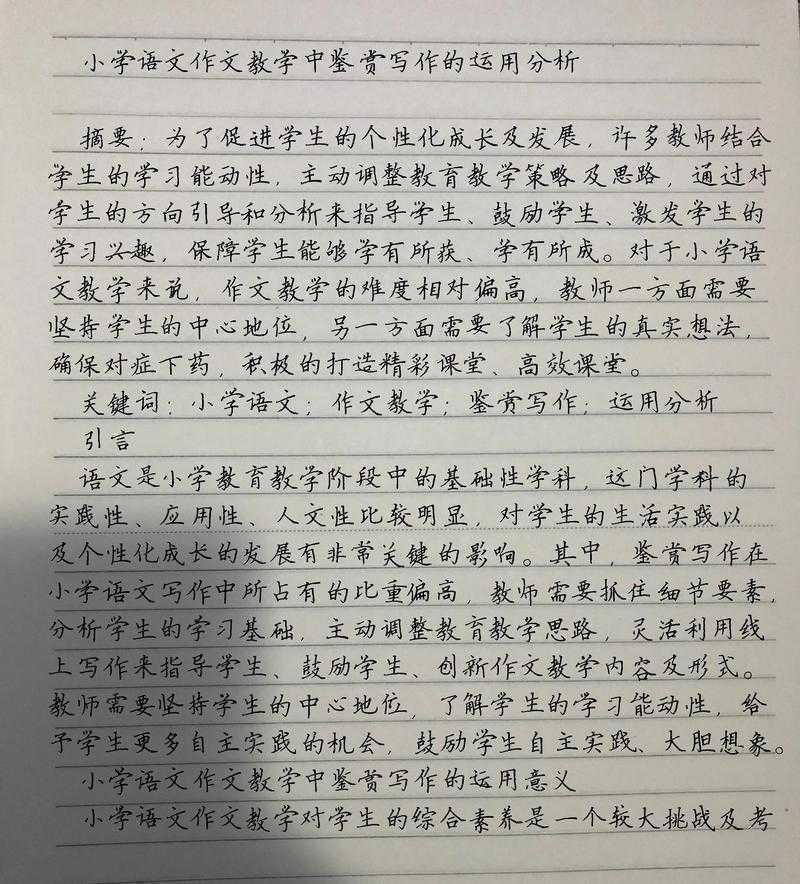 小学语文作文教学中鉴赏写作的运用分析
摘要：为了促进学生的个性化成长及发展，许多教师结合
学生的学习能动性，主动调整教育教学策略及思路，通过对
学生的方向引导和分析来指导学生、鼓励学生、激发学生的
学习兴趣，保障学生能够学有所获、学有所成。对于小学语
文教学来说，作文教学的难度相对偏高，教师一方面需要
坚持学生的中心地位，另一方面需要了解学生的真实想法，
确保对症下药，积极的打造精彩课堂、高效课堂。
关键词：小学语文；作文教学；鉴赏写作；运用分析
引言
语文是小学教育教学阶段中的基础性学科，这门学科的
实践性、应用性、人文性比较明显，对学生的生活实践以
及个性化成长的发展有非常关键的影响。其中，鉴赏写作在
小学语文写作中所占有的比重偏高，教师需要抓住细节要素，
分析学生的学习基础，主动调整教育教学思路，灵活利用线
上写作来指导学生、鼓励学生、创新作文教学内容及形式。
教师需要坚持学生的中心地位，了解学生的学习能动性，给
予学生更多自主实践的机会，鼓励学生自主实践、大胆想象。
小学语文作文教学中鉴赏写作的运用意义
小学语文作文教学对学生的综合素养是一个较大挑战及考